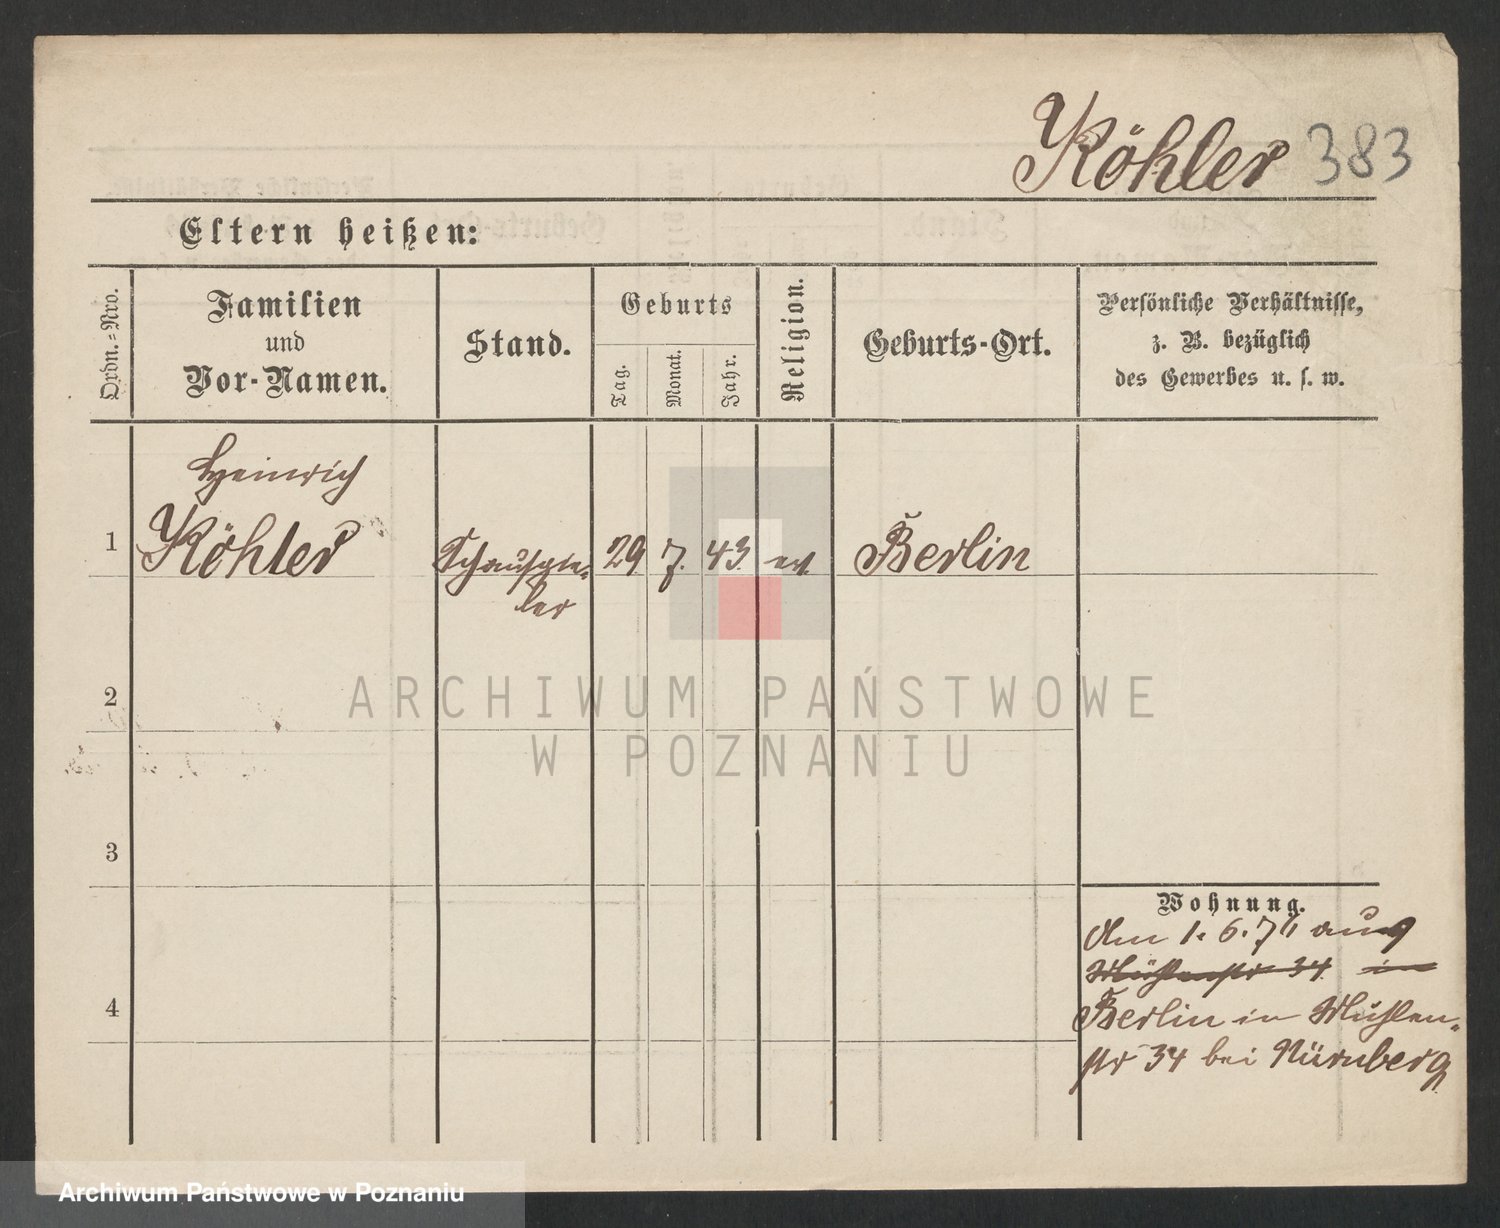 Köhler 383
Eltern heißen:
Ordn.=Nro.
Familien
und
Vor-Namen.
Stand.
Geburts
Tag.
Monat.
Jahr.
Religion.
Geburts-Ort.
Persönliche Verhältnisse,
z. B. bezüglich
des Gewerbes u. s. w.
Heinrich
1 Köhler Schauspie= 29 7. 43. ev. Berlin
ler
2
3
4
Wohnung.
den 1. 6. 71 aus
Mühlenstr 34 in
Berlin in Mühlen=
str 34 bei Nürnberg
ARCHIWUM PAŃSTWOWE
W POZNANIU
Archiwum Państwowe w Poznaniu